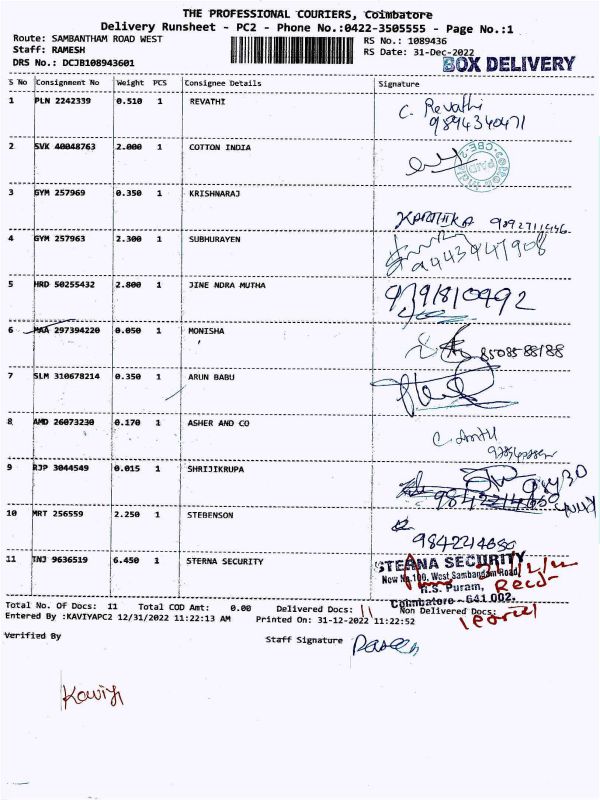 THE PROFESSIONAL COURIERS, Coimbatore
Delivery Runsheet - PC2 - Phone No.:0422-3505555 - Page No.:1
Route: SAMBANTHAM ROAD WEST
RS No.: 1089436
Staff: RAMESH
RS Date: 31-Dec-2022
DRS No.: DCJB108943601
BOX DELIVERY
S No Consignment No Weight PCS Consignee Details Signature
1 PLN 2242339 0.510 1 REVATHI
C. Revathi
9894340471
2 SVK 40048763 2.000 1 COTTON INDIA
PAID
3 GYM 257969 0.350 1 KRISHNARAJ
KARTHIKA
4 GYM 257963 2.300 1 SUBHURAYEN
5 HRD 50255432 2.800 1 JINE NDRA MUTHA
6 MAA 297394220 0.050 1 MONISHA
8508588188
7 SLM 310678214 0.350 1 ARUN BABU
8 AMD 26073230 0.170 1 ASHER AND CO
9 RJP 3044549 0.015 1 SHRIJIKRUPA
10 MRT 256559 2.250 1 STEBENSON
11 TNJ 9636519 6.450 1 STERNA SECURITY
STERNA SECURITY
New No.100, West Sambandam Road,
R.S. Puram,
Coimbatore - 641 002.
Total No. Of Docs: 11 Total COD Amt: 0.00 Delivered Docs: 11 Non Delivered Docs:
Entered By :KAVIYAPC2 12/31/2022 11:22:13 AM Printed On: 31-12-2022 11:22:52
Verified By Staff Signature